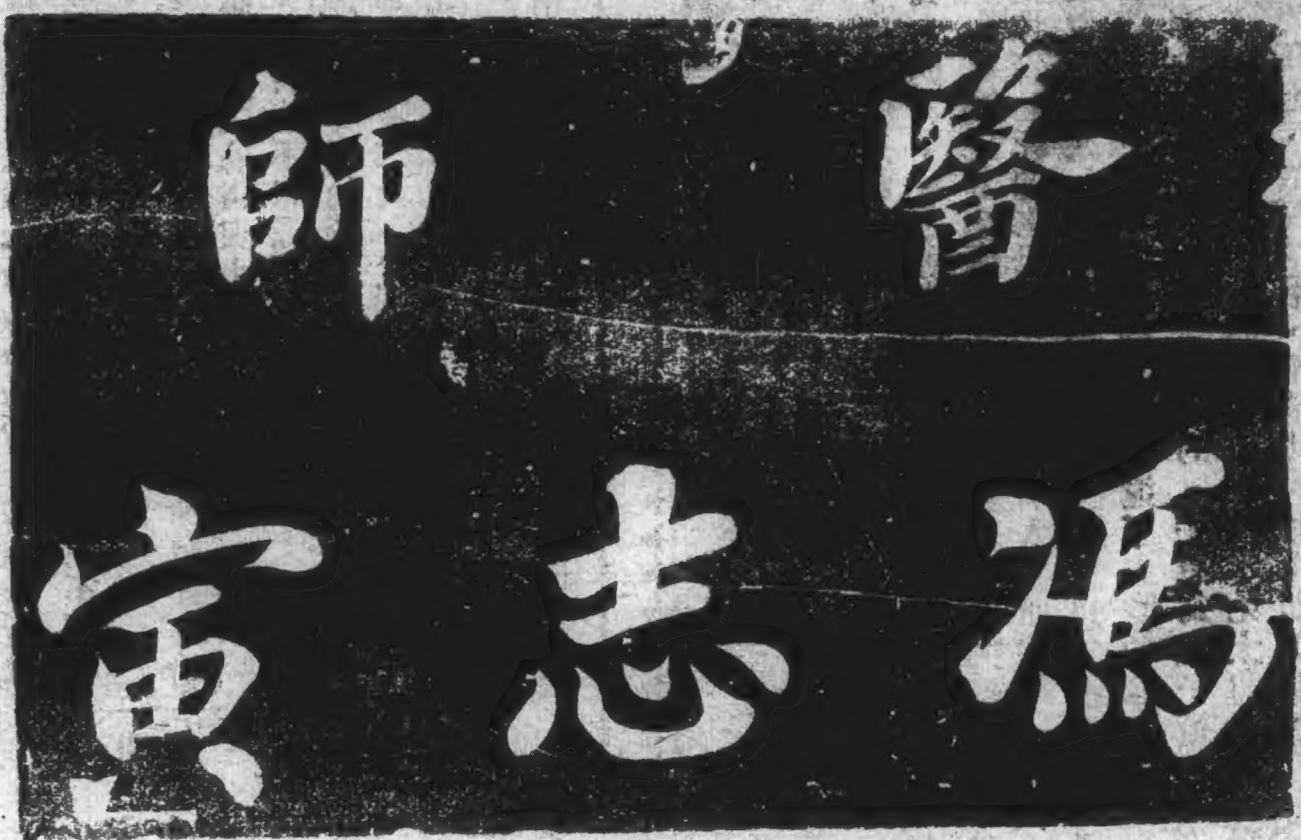 醫師
馮志寅